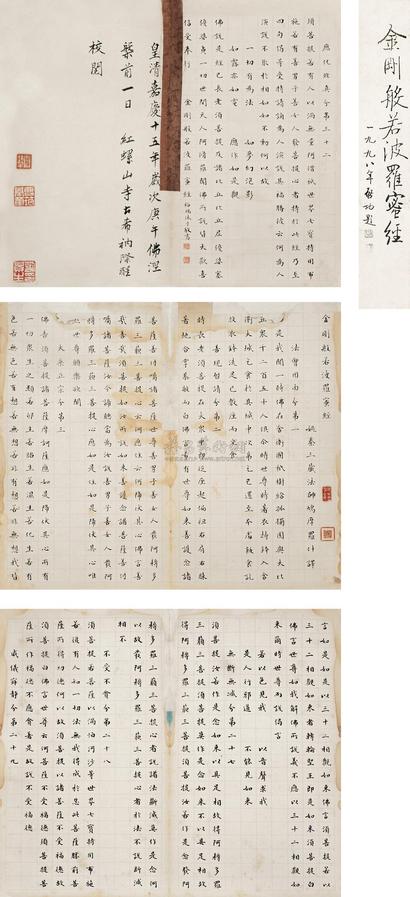 金剛般若波羅蜜經
一九九八年啟功題
應化非真分第三十二
須菩提若有人以滿無量阿僧祇世界七寶持用布
施若有善男子善女人發菩提心者持於此經乃至
四句偈等受持讀誦為人演說其福勝彼云何為人
演說不取於相如如不動何以故
一切有為法 如夢幻泡影
如露亦如電 應作如是觀
佛說是經已長老須菩提及諸比丘比丘尼優婆塞
優婆夷一切世間天人阿修羅聞佛所說皆大歡喜
信受奉行
金剛般若波羅蜜經
皇清嘉慶十五年歲次庚午佛涅
槃前一日 紅螺山寺古希衲際醒
校閱
金剛般若波羅蜜經
姚秦三藏法師鳩摩羅什譯
法會因由分第一
是我聞一時佛在舍衛國祇樹給孤獨園與大比
丘眾千二百五十人俱爾時世尊食時著衣持鉢入舍
衛大城乞食於其城中次第乞已還至本處飯食訖
收衣鉢洗足已敷座而坐
善現啟請分第二
時長老須菩提在大眾中即從座起偏袒右肩右膝
著地合掌恭敬而白佛言希有世尊如來善護念諸
菩薩善付囑諸菩薩世尊善男子善女人發阿耨多
羅三藐三菩提心應云何住云何降伏其心佛言善
哉善哉須菩提如汝所說如來善護念諸菩薩善付
囑諸菩薩汝今諦聽當為汝說善男子善女人發阿
耨多羅三藐三菩提心應如是住如是降伏其心唯
然世尊願樂欲聞
大乘正宗分第三
佛告須菩提諸菩薩摩訶薩應如是降伏其心所有
一切眾生之類若卵生若胎生若濕生若化生若有
色若無色若有想若無想若非有想非無想我皆
言如是如是以三十二相觀如來佛言須菩提若以
三十二相觀如來者轉輪聖王即是如來須菩提白
佛言世尊如我解佛所說義不應以三十二相觀如
來爾時世尊而說偈言
若以色見我 以音聲求我
是人行邪道 不能見如來
無斷無滅分第二十七
須菩提汝若作是念如來不以具足相故得阿耨多羅
三藐三菩提須菩提莫作是念如來不以具足相故
得阿耨多羅三藐三菩提須菩提汝若作是念發阿
耨多羅三藐三菩提心者說諸法斷滅莫作是念何
以故發阿耨多羅三藐三菩提心者於法不說斷滅
相
不受不貪分第二十八
須菩提若菩薩以滿恒河沙等世界七寶持用布施
若復有人知一切法無我得成於忍此菩薩勝前菩
薩所得功德何以故須菩提以諸菩薩不受福德故
須菩提白佛言世尊云何菩薩不受福德須菩提菩
薩所作福德不應貪著是故說不受福德
威儀寂靜分第二十九